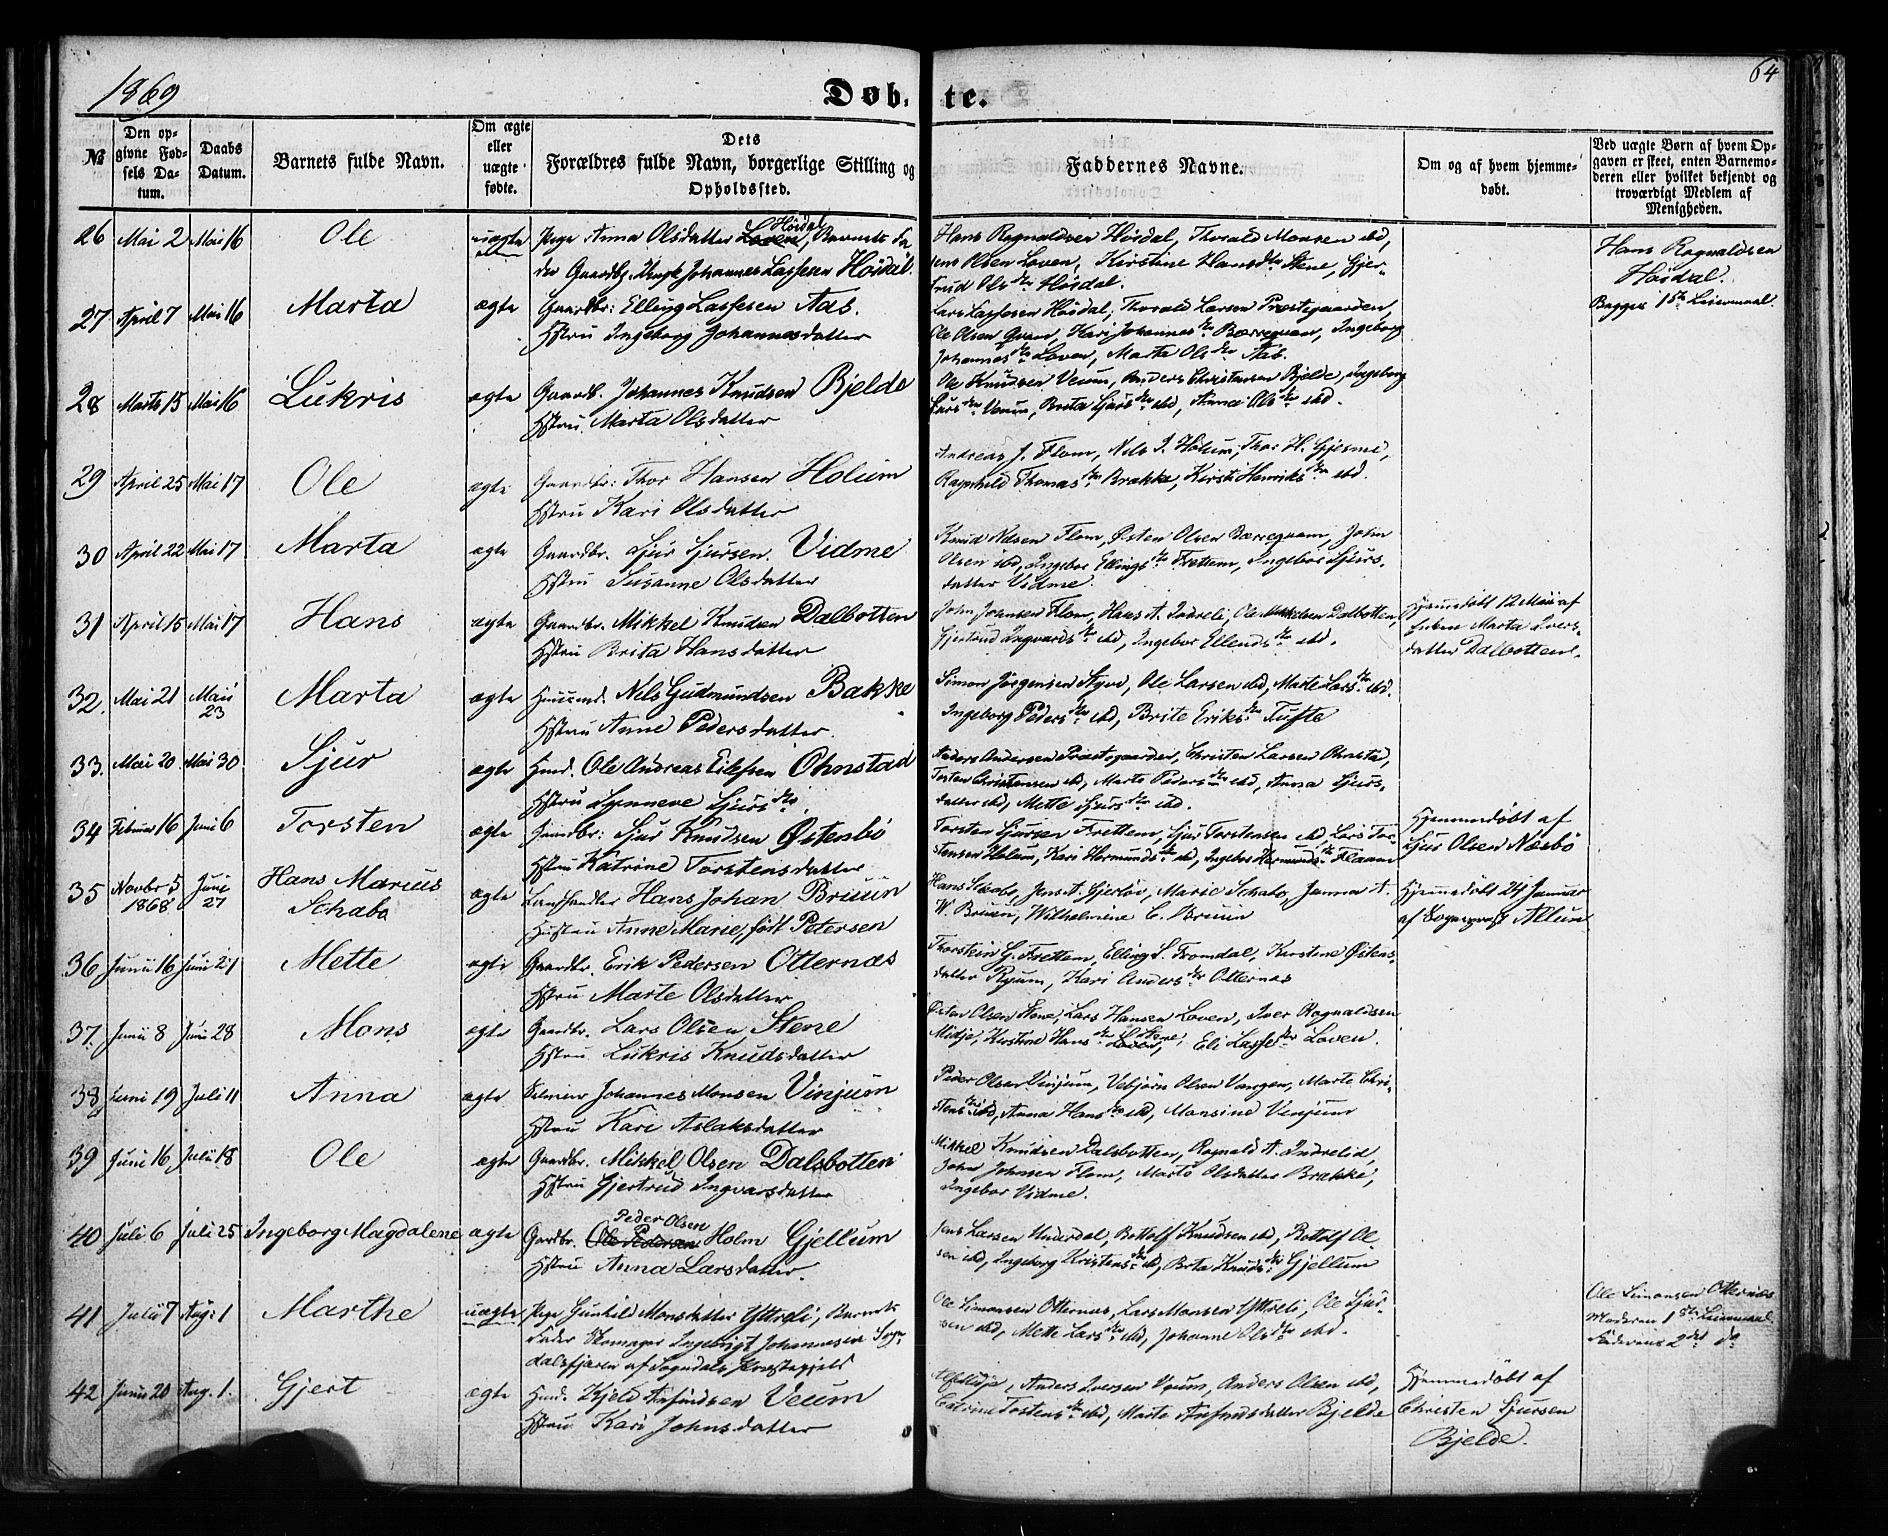 1869
Døb- te.
64
№
Den opgivne Fødsels Datum.
Daabs Datum.
Barnets fulde Navn.
Om ægte eller uægte fødte.
Dets Forældres fulde Navn, borgerlige Stilling og Opholdssted.
Faddernes Navne.
Om og af hvem hjemmedøbt.
Ved uægte Børn af hvem Opgaven er skeet, enten Barnemoderen eller hvilket bekjendt og troværdigt Medlem af Menigheden.
26 Mai 2 Mai 16 Ole uægte Pige Anna Olsdatter Loven Høidal, Barnets Fa
der Gaardbr. Johannes Lassesen Høidal.
Hans Ragnaldsen Høidal, Thorald Monsen ibd,
Jens Olsen Loven, Kirstine Hansdtr Stene, Gjer-
trud Olsdtr Høidal.
Hans Ragnaldsen
Høidal.
Begges 1ste Leiermaal.
27 April 7 Mai 16 Marta ægte Gaardbr: Elling Lassesen Aas.
Hstru Ingeborg Johannesdatter
Lars Lassesen Høidal, Thorald Larsen Præstegaarden,
Ole Olsen Qvam, Kari Johannesdtr Bærreqvam, Ingeborg
Johannesdtr Loven, Marta Olsdtr Aas.
28 Marts 15 Mai 16 Lukris ægte Gaardb. Johannes Knudsen Bjelde
Hstru Marta Olsdatter
Ole Knudsen Veum, Anders Christensen Bjelde, Ingeborg
Larsdtr Veum, Brita Sjursdtr ibd, Anna Olsdtr ibd.
29 April 25 Mai 17 Ole ægte Gaardbr: Thor Hansen Holum
Hstru Kari Olsdatter
Andreas J. Flom, Nils I. Holum, Thor H. Gjesme,
Ragnhild Thomasdtr Brække, Kirsti Henriksdtr ibd.
30 April 22 Mai 17 Marta ægte Gaardbr. Sjur Sjursen Vidme
Hstru Susanne Olsdatter
Knud Nilsen Flom, Østen Olsen Bærreqvam, John
Olsen ibd, Ingebor Ellingsdtr Frettem, Ingebor Sjurs-
datter Vidme.
31 April 15 Mai 17 Hans ægte Gaardbr. Mikkel Knudsen Dalbotten
Hstru Brita Hansdatter
John Johnsen Flom, Hans A. Indreli, Ole Mikkelsen Dalbotten,
Gjertrud Ingvardsdtr ibd, Ingebor Ellendsdtr ibd.
Hjemmedøbt 12 Mai af
Enken Marta Ivers-
datter Dalbotten.
32. Mai 21 Mai 23 Marta ægte Huusmd. Nils Gudmundsen Bakke
Hstru Anne Pedersdatter.
Simon Jørgensen Styve, Ole Larsen ibd, Marte Larsdtr ibd.
Ingeborg Pedersdtr ibd, Brite Eriksdtr Tufte
33. Mai 20 Mai 30 Sjur ægte Hmd. Ole Andreas Eilefsen Ohnstad
Hstru Synneve Sjursdtr.
Anders Andersen Præstegaarden, Christen Larsen Ohnstad,
Torsten Christensen ibd, Marte Pedersdtr ibd, Anna Sjurs-
datter ibd, Mette Sjursdtr ibd.
34 Februar 16 Juni 6 Torsten ægte Gaardbr: Sjur Knudsen Østenbø
Hstru Katrine Torstensdatter
Torsten Sjursen Frettem, Sjur Torstensen ibd, Lars Tor-
stensen Holum, Kari Hermundsdtr ibd, Ingebor Hermundsdtr Flaam
Hjemmedøbt af
Sjur Olsen Næsbø
35 Novbr 5 1868 Juni 27 Hans Marius
Schabo
ægte Landhandler Hans Johan Bruun
Hustru Anne Marie, født Petersen
Hans Schabo, Jens A. Gjerløv, Marie Schabo, Janna A.
W. Bruun, Wilhelmine C. Bruun
Hjemmedøbt 24 Januar
af Sognepræst Allum
36. Junii 16 Juni 21 Mette ægte Gaardbr. Erik Pedersen Otternæs
Hstru Marte Olsdatter
Thorstein G. Frettem, Elling S. Fromdal, Kirstine Østens-
datter Ryum, Kari Andersdtr Otternæs
37. Junii 8 Juni 28 Mons ægte Gaardbr. Lars Olsen Stene
Hstru Lukris Knudsdatter
Østen Olsen Stene, Lars Hansen Loven, Iver Ragnaldsen
Midje, Kirstine Hansdtr Loven Stene, Eli Lassesdtr Loven.
38. Juni 19 Juli 11 Anna ægte Selveier Johannes Monsen Vinjum
Hstru Kari Aslaksdatter
Peder Olsen Vinjum, Vebjørn Olsen Vangen, Marte Chri-
stensdtr ibd, Anna Hansdtr ibd, Monsine Vinjum
39 Juni 16 Julii 18 Ole ægte Gaardbr. Mikkel Olsen Dalsbotten
Hstru Gjertrud Ingvarsdatter
Mikkel Knudsen Dalsbotten, Ragnald A. Indrelid,
John Johnsen Flom, Marta Olsdatter Brække,
Ingebor Vidme.
40 Juli 6 Juli 25 Ingeborg Magdalene ægte Gardbr. Ole Pedersen Peder Olsen Holm Gjellum
Hstru Anna Larsdatter.
Jens Larsen Underdal, Botolf Knudsen ibd, Botolf Ol-
sen ibd, Ingeborg Kristensdtr ibd, Brita Knudsdtr Gjellum
41 Julii 7 Aug: 1 Marthe uægte Pige Gunhild Monsdatter Yttreli, Barnets
Fader Skomager Ingebrigt Johannesen Sogn-
dalsfjæren af Sogndals Præstegjeld
Ole Simonsen Otternæs, Lars Monsen Yttreli, Ole Sjur-
sen ibd, Mette Larsdtr ibd, Johanne Olsdtr ibd.
Ole Simonsen Otternæs
Moderens 1ste Leiermaal
Faderens 2det do
42 Junii 20 Aug. 1. Gjert ægte Hmd. Kjeld Anfindsen Veum
Hstru Kari Johnsdatter
Anders Iversen Veum, Anders Olsen ibd,
Catrine Torstensdtr ibd, Marte Anfindsdatter Bjelde
Hjemmedøbt af
Christen Sjursen
Bjelde.